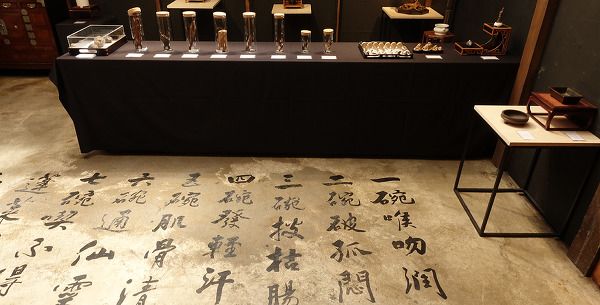 一碗喉吻潤
二碗破孤悶
三碗搜枯腸
四碗發輕汗
五碗肌骨清
六碗通仙靈
七碗喫不得
蓬萊